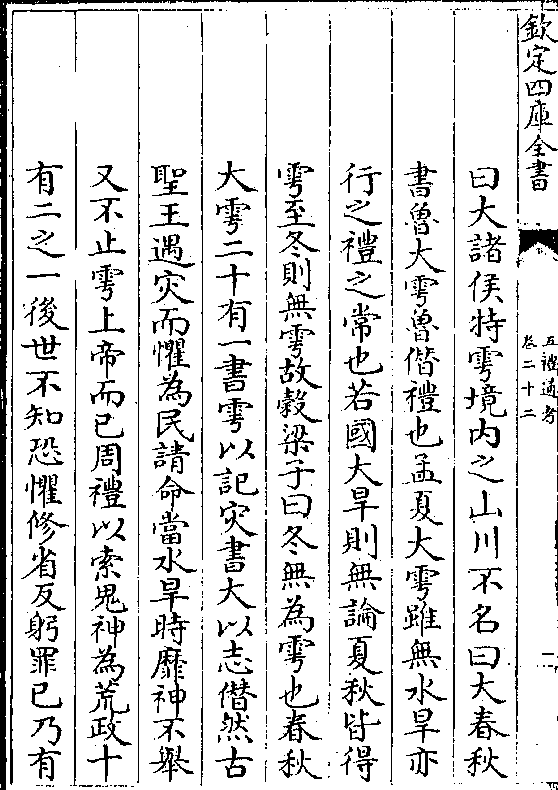 欽定四庫全書
五禮通考
卷二十二
曰大諸侯特雩境内之山川不名曰大春秋
書魯大雩魯僭禮也孟夏大雩雖無水旱亦
行之禮之常也若國大旱則無論夏秋皆得
雩至冬則無雩故穀梁子曰冬無為雩也春秋
大雩二十有一書雩以記灾書大以志僭然古
聖王遇灾而懼為民請命當水旱時靡神不舉
又不止雩上帝而已周禮以索鬼神為荒政十
有二之一後世不知恐懼修省反躬罪已乃有